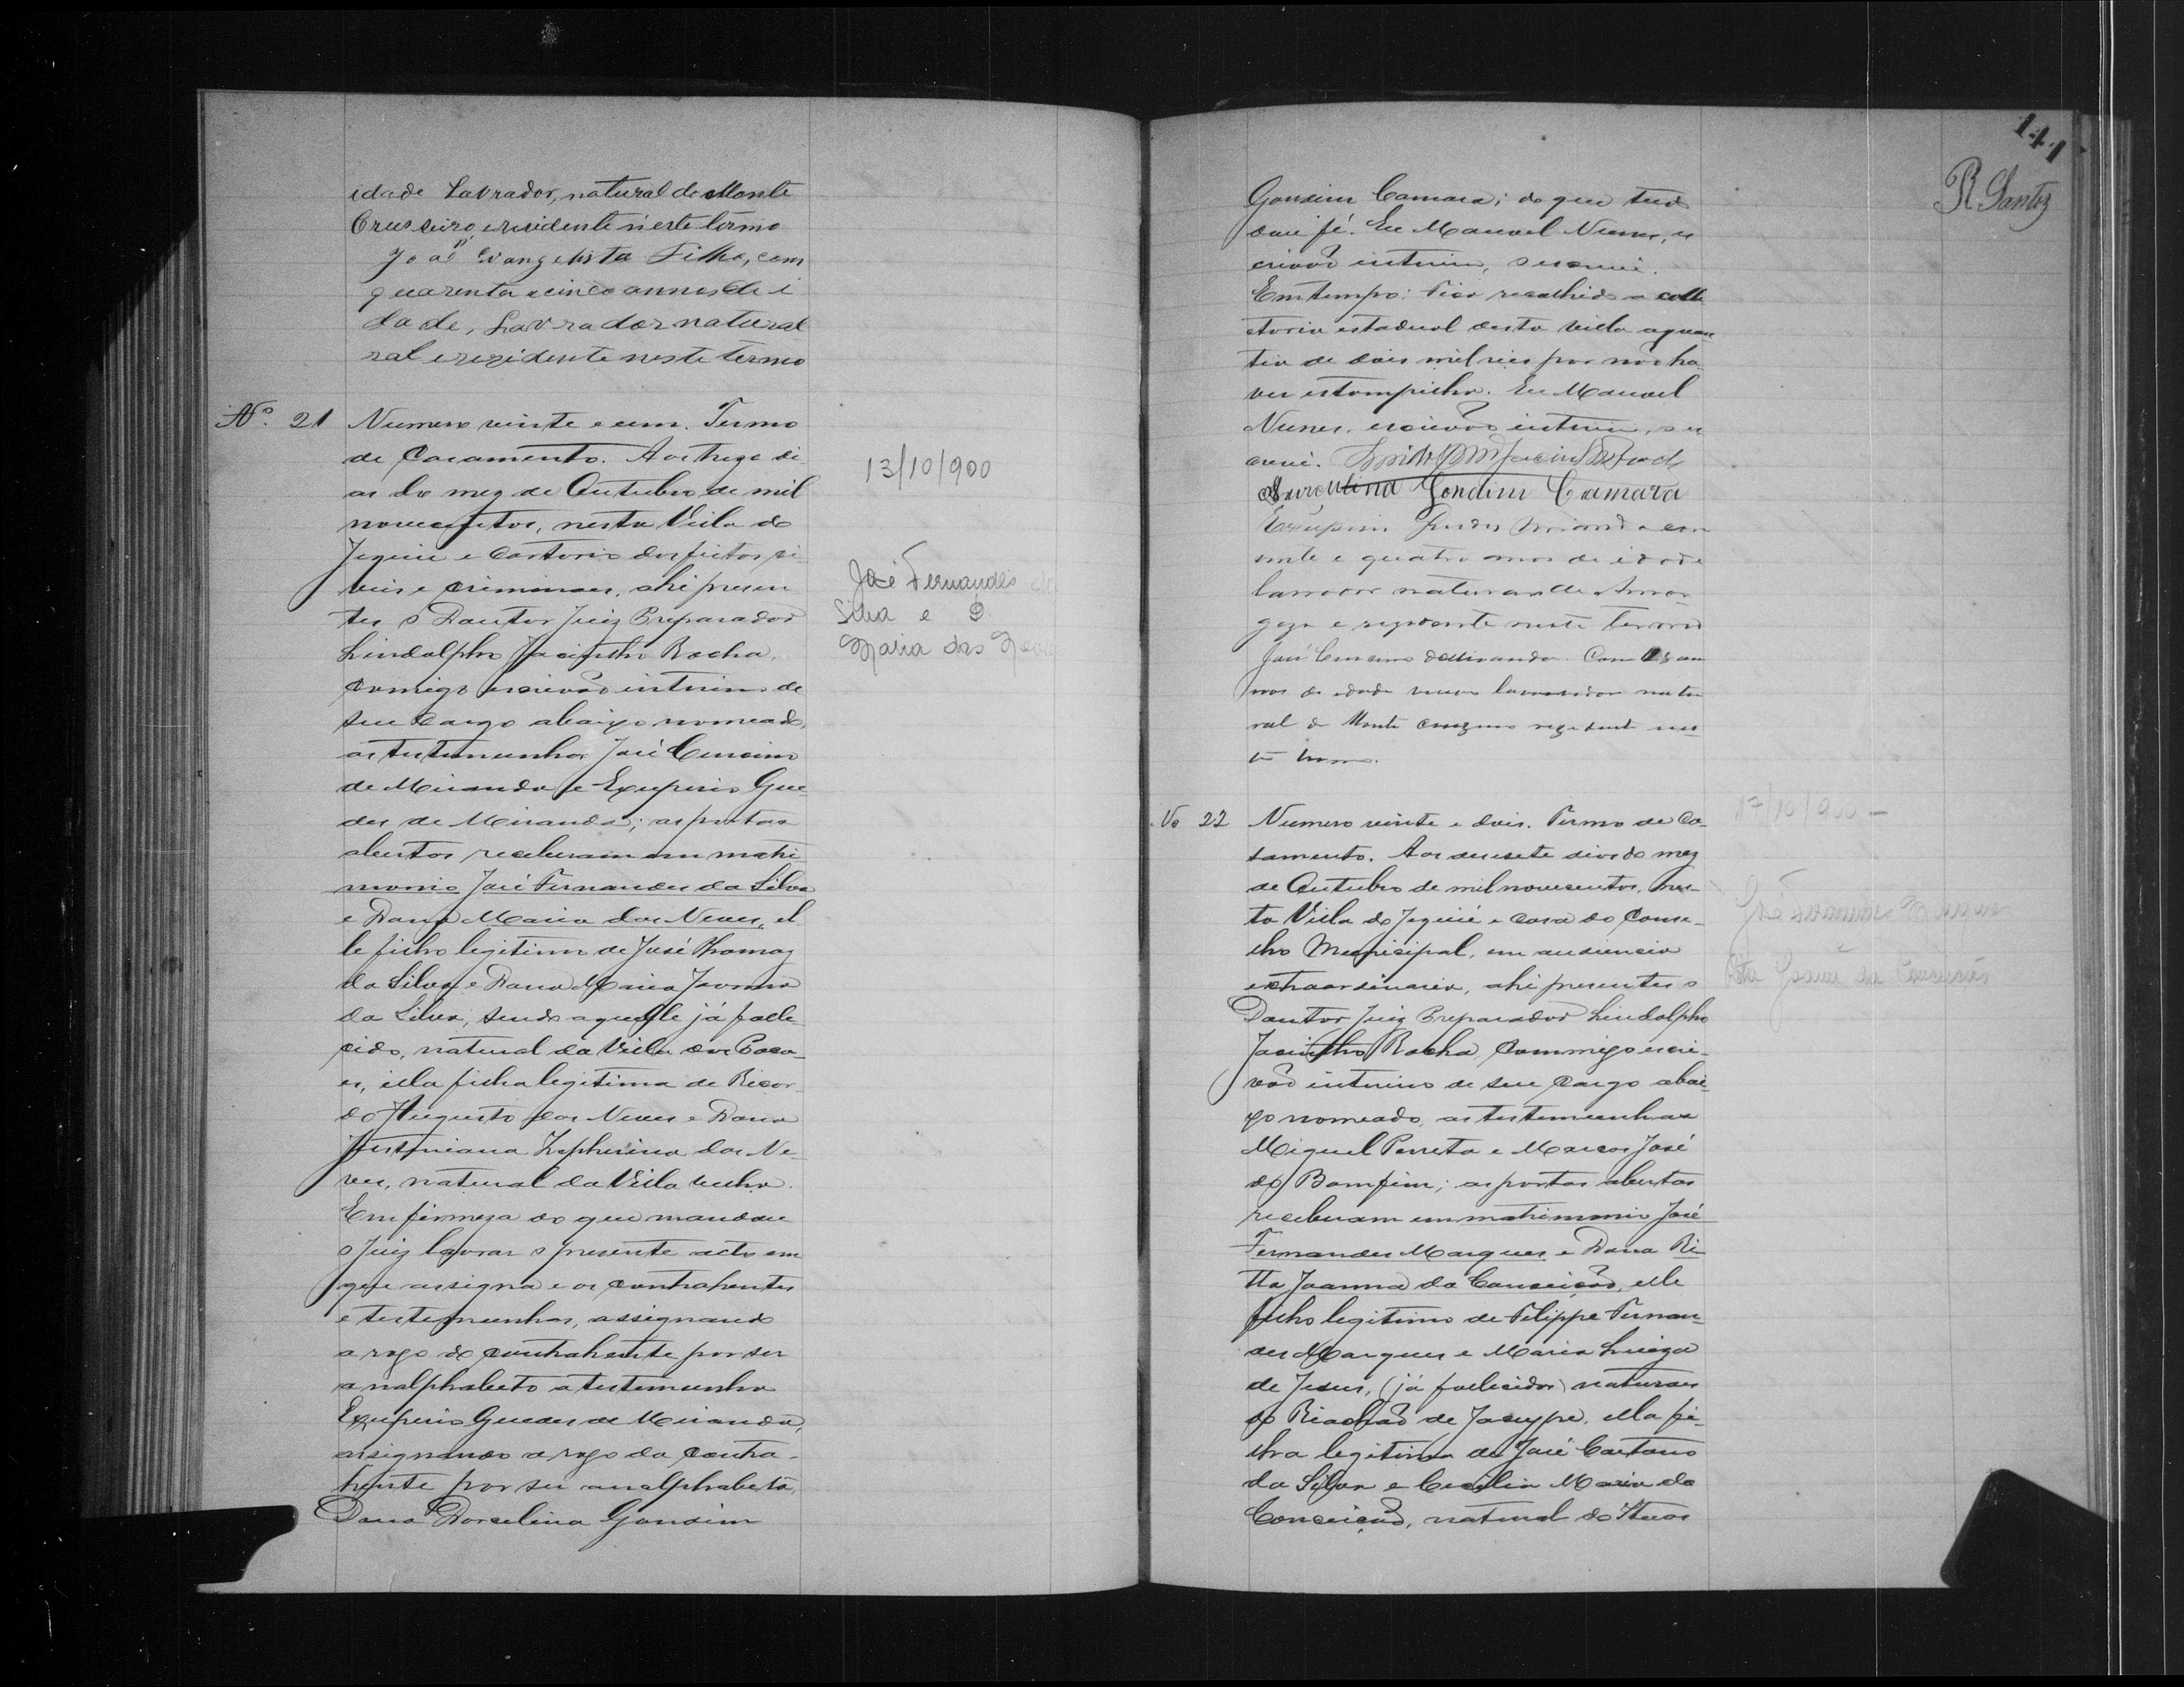 idade Lavrador, natural de Monte
Crusseiro e residente n'este termo
João Evangelista Filho, com
quarenta e cinco annos de i
dade, Lavrador natural
ral e rezidente neste termo
Nº 21 Numero vinte e um. Termo
de Casamento. Aos treze di
as do mez de Outubro de mil
novecentos, nesta Villa de
Jequié e Cartorio dos feitos ci
veis e criminaes, ahi presen
tes o Doutor Juiz Preparador
Lindolpho Jacintho Rocha,
commigo escrivão interino de
seu cargo abaixo nomeado,
as testemunhas José Cursino
de Miranda e Exuperio Gue
des de Miranda; as portas
abertas receberam em matri
monio José Fernandes da Silva
e Dona Maria das Neves, el
le filho legitimo de José Thomaz
da Silva e Dona Maria Joanna
da Silva, sendo aquelle já falle
cido, natural da Villa dos Poço
es, ella filha legitima de Ricar
do Augusto das Neves e Dona
Justiniana Zepherina das Ne
ves, natural da Villa velha.
Em firmeza do que mandou
o Juiz lavrar o presente acto em
que assigna e os contrahentes
e testemunhas, assignando
a rogo do contrahente por ser
analphabeto a testemunha
Exuperio Guedes de Miranda,
assignando a rogo da contra-
hente por ser analphabeta,
Dona Dorcelina Gondim
13/10/900
José Fernandes da
Silva e D.
Maria das Neves
141
R Santos
Gondim Camara; do que tudo
dou fé. Eu Manoel Nunes, es
crivão interino, o escrevi.
Em tempo: Fica recolhido a colle
ctoria estadual desta villa a quan
tia de dois mil reis por não ha
ver estampilha. Eu Manoel
Nunes, escrivão interino, o es
crevi.
Gondim Camara
Exuperio Guedes Miranda com
vinte e quatro anos de idade
lavrador natural de Amar
goza e rezidente neste termo
José Cursino de Miranda. Com
nos de edade lavrador natu
ral de Monte Cruzeiro rezidente nes
te termo.
No 22 Numero vinte e dois. Termo de Ca-
samento. Aos desesete dias do mez
de Outubro de mil novecentos, nes-
ta Villa de Jequié e casa do Conse-
lho Municipal, em audiencia
extraordinaria, ahi presentes o
Doutor Juiz Preparador Lindolpho
Jacintho Rocha, commigo escri-
vão interino de seu cargo abai-
xo nomeado, as testemunhas
Miguel Perreta e Marcos José
do Bomfim; as portas abertas
receberam em matrimonio José
Fernandes Marques e Dona Ri-
tta Joanna da Conceição, elle
filho legitimo de Filippe Fernan-
des Marques e Maria Luiza
de Jesus, (já fallecidos) naturaes
do Riachão de Jacuype, ella fi-
lha legitima de José Caetano
da Silva e Cecilia Maria da
Conceição, natural do Ituas
17/10/900 —
José Fernandes Marques
e
Rita Joana da Conceição